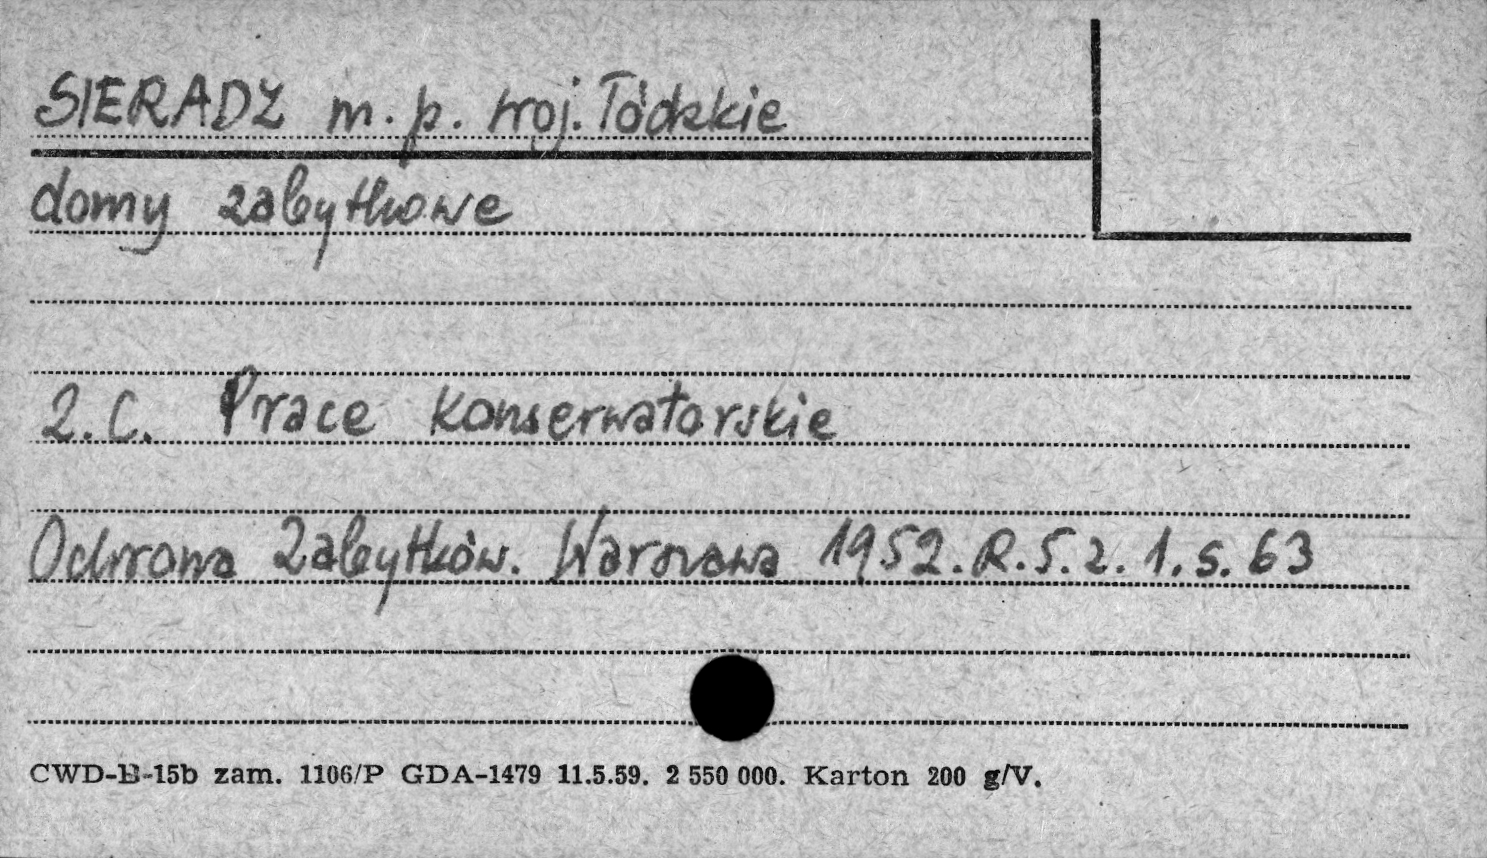 SIERADZ m. p. woj. Łódzkie
domy zabytkowe
2. C. Prace konserwatorskie
Ochrona Zabytków. Warszawa 1952. R. 5. z. 1. s. 63
CWD-B-15b zam. 1106/P GDA-1479 11.5.59. 2 550 000. Karton 200 g/V.